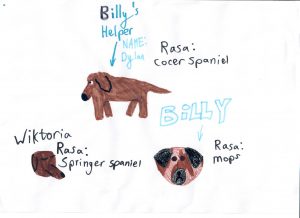 Billy's
Helper
NAME:
Dylan
Rasa:
Cocer spaniel
BiLLY
Wiktoria
Rasa:
Springer spaniel
Rasa:
mops